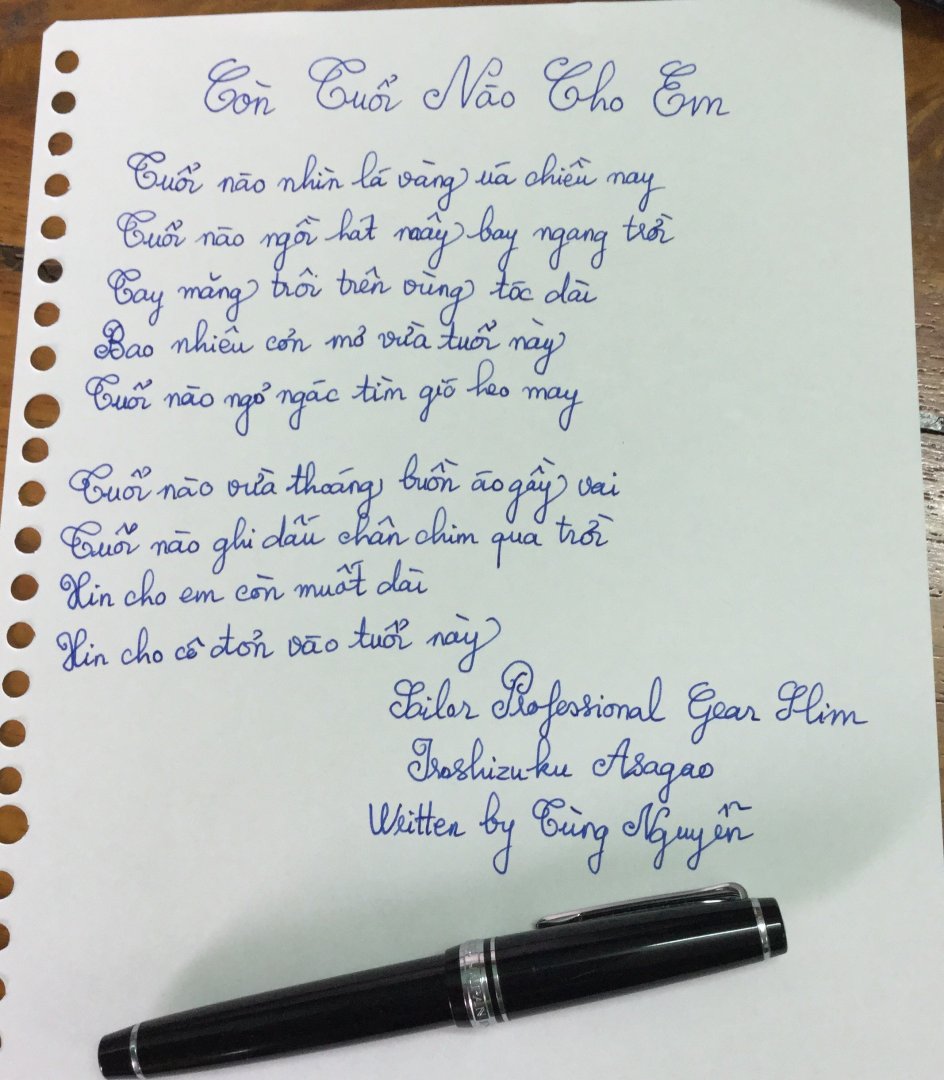 Còn Tuổi Nào Cho Em
Tuổi nào nhìn lá vàng úa chiều nay
Tuổi nào ngồi hát mây bay ngang trời
Tay măng trôi trên vùng tóc dài
Bao nhiêu cơn mơ vừa tuổi này
Tuổi nào ngơ ngác tìm gió heo may
Tuổi nào vừa thoáng buồn áo gầy vai
Tuổi nào ghi dấu chân chim qua trời
Xin cho em còn muốt dài
Xin cho cô đơn vào tuổi này
Sailor Professional Gear Slim
Iroshizuku Asagao
Written by Tùng Nguyễn